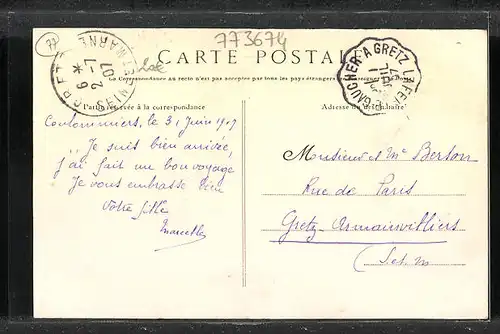 77
773674
CARTE POSTALE
La Correspondance au recto n'est pas acceptée par tous les pays étrangers
Partie réservée à la correspondance
Adresse du destinataire
GRETZ
SEINE ET MARNE
6 *
2 -7
07
LA FERTÉ-GAUCHER A GRETZ
Coulommiers le 31 Juin 1907
Je suis bien arrivée,
j'ai fait un bon voyage
Je vous embrasse bien
Votre fille
Marcelle
Monsieur et Me Berson
Rue de Paris
Gretz-Armainvilliers
S. et M